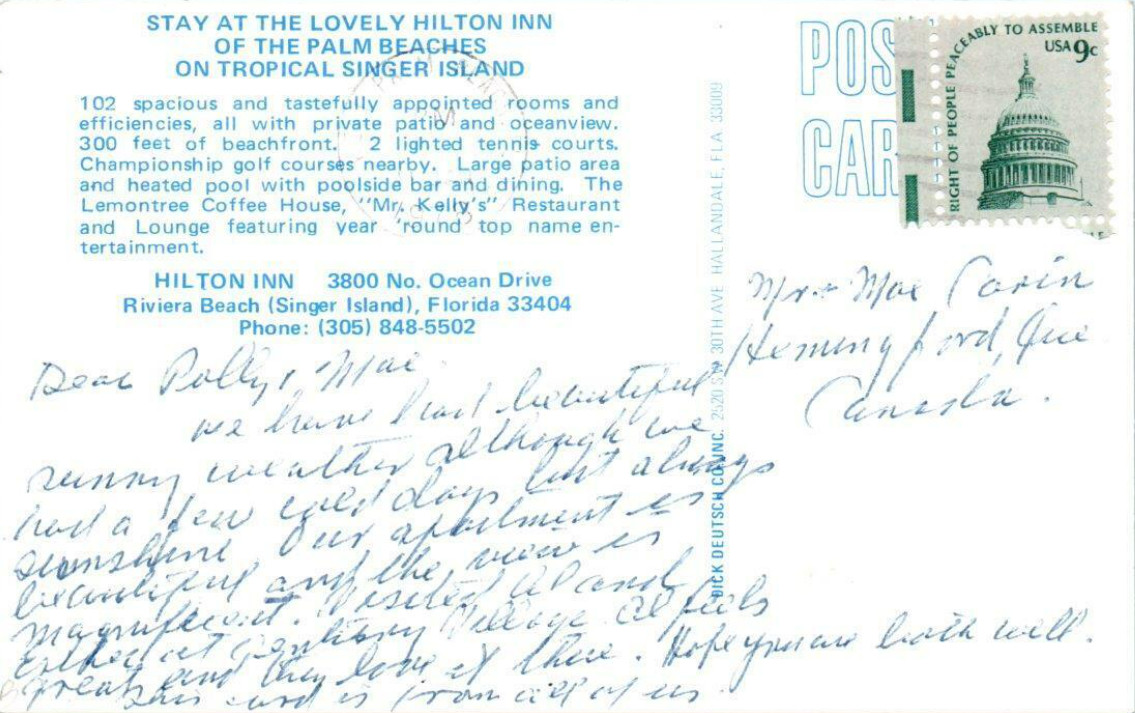 STAY AT THE LOVELY HILTON INN
OF THE PALM BEACHES
ON TROPICAL SINGER ISLAND
102 spacious and tastefully appointed rooms and
efficiencies, all with private patio and oceanview.
300 feet of beachfront. 2 lighted tennis courts.
Championship golf courses nearby. Large patio area
and heated pool with poolside bar and dining. The
Lemontree Coffee House, "Mr. Kelly's" Restaurant
and Lounge featuring year 'round top name en-
tertainment.
HILTON INN 3800 No. Ocean Drive
Riviera Beach (Singer Island), Florida 33404
Phone: (305) 848-5502
Dear Polly & Mae
we have had beautiful
sunny weather although we
had a few cold days but always
sunshine. Our apartment is
beautiful and the view is
magnificent. Visited Al and
Esther at Century Village. Al feels
great and they love it there. Hope you are both well.
This card is from all of us
DICK DEUTSCH CO. INC. 2520 SW 30TH AVE HALLANDALE, FLA. 33009
POS
CAR
RIGHT OF PEOPLE PEACEABLY TO ASSEMBLE
USA 9c
Mae
Hemingford, Que
Canada.